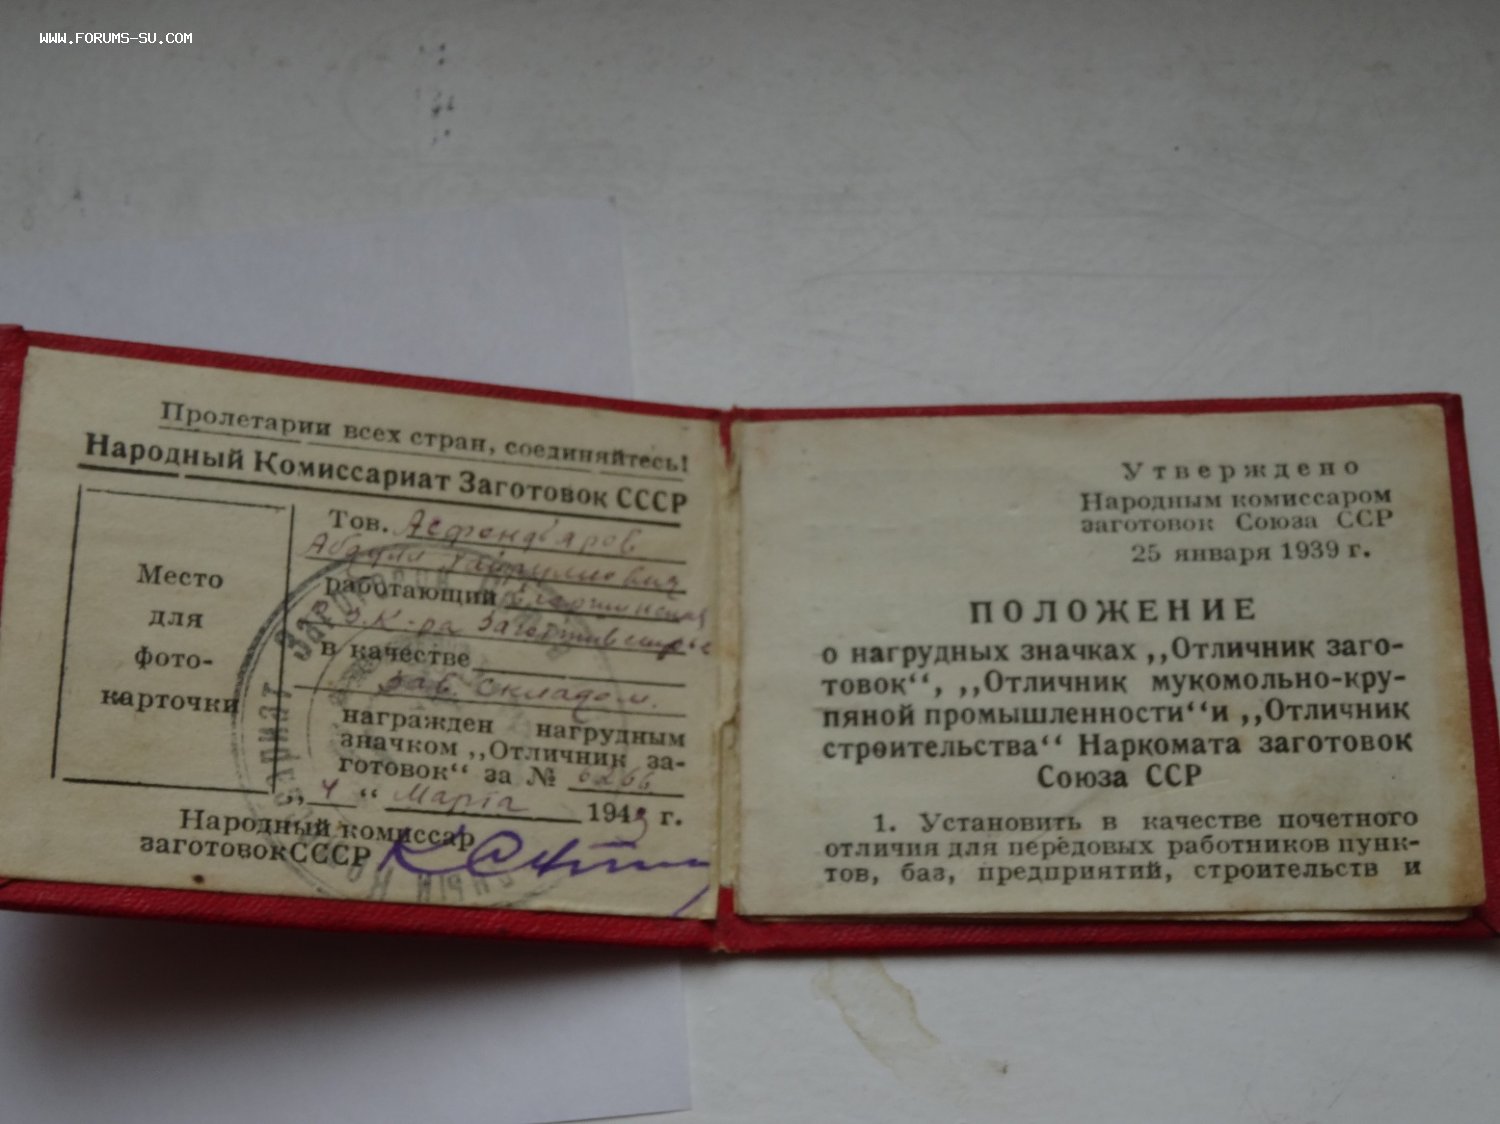 WWW.FORUMS-SU.COM
Пролетарии всех стран, соединяйтесь!
Народный Комиссариат Заготовок СССР
Место
для
фото-
карточки
Тов. Асфендьяров
Абдул
работающий
в качестве
зав. складом.
награжден нагрудным
значком „Отличник за-
готовок“ за № 6266
„ 4 “ Марта 1943 г.
Народный комиссар
заготовок СССР
Утверждено
Народным комиссаром
заготовок Союза ССР
25 января 1939 г.
ПОЛОЖЕНИЕ
о нагрудных значках „Отличник заго-
товок“, „Отличник мукомольно-кру-
пяной промышленности“ и „Отличник
строительства“ Наркомата заготовок
Союза ССР
1. Установить в качестве почетного
отличия для передовых работников пунк-
тов, баз, предприятий, строительств и